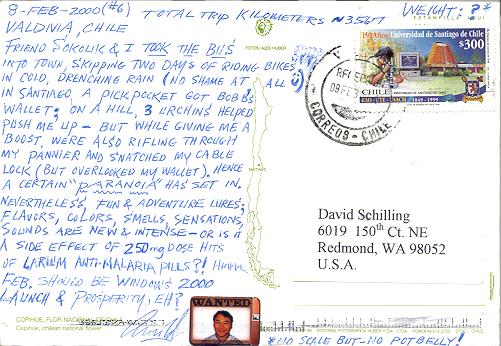 8-FEB-2000 (#6)
TOTAL TRIP KILOMETERS ≈ 3567
WEIGHT: ?*
VALDIVIA, CHILE
FRIEND SOKOLIK & I TOOK THE BUS
INTO TOWN, SKIPPING TWO DAYS OF RIDING BIKES
IN COLD, DRENCHING RAIN (NO SHAME AT ALL)
IN SANTIAGO, A PICKPOCKET GOT BOB'S
WALLET; ON A HILL, 3 URCHINS HELPED
PUSH ME UP - BUT WHILE GIVING ME A
BOOST, WERE ALSO RIFLING THROUGH
MY PANNIER AND SNATCHED MY CABLE
LOCK (BUT OVERLOOKED MY WALLET). HENCE
A CERTAIN "PARANOIA" HAS SET IN.
NEVERTHELESS, FUN & ADVENTURE LURES;
FLAVORS, COLORS, SMELLS, SENSATIONS,
SOUNDS ARE NEW & INTENSE - OR IS IT
A SIDE EFFECT OF 250mg DOSE HITS
OF LARIUM ANTI-MALARIA PILLS?! HMMM.
FEB. SHOULD BE WINDOWS 2000
LAUNCH & PROSPERITY, EH?
COPIHUE, FLOR NACIONAL DE CHILE
Copihue, chilean national flower
FOTOS: ALDI HUBER
ESTAMPILLA AQUI
150 Años Universidad de Santiago de Chile
$300
CHILE
EAO-UTE-USACH 1849-1999
CORREOS - CHILE
David Schilling
6019 150th Ct. NE
Redmond, WA 98052
U.S.A.
WANTED
*NO SCALE BUT-NO POTBELLY!